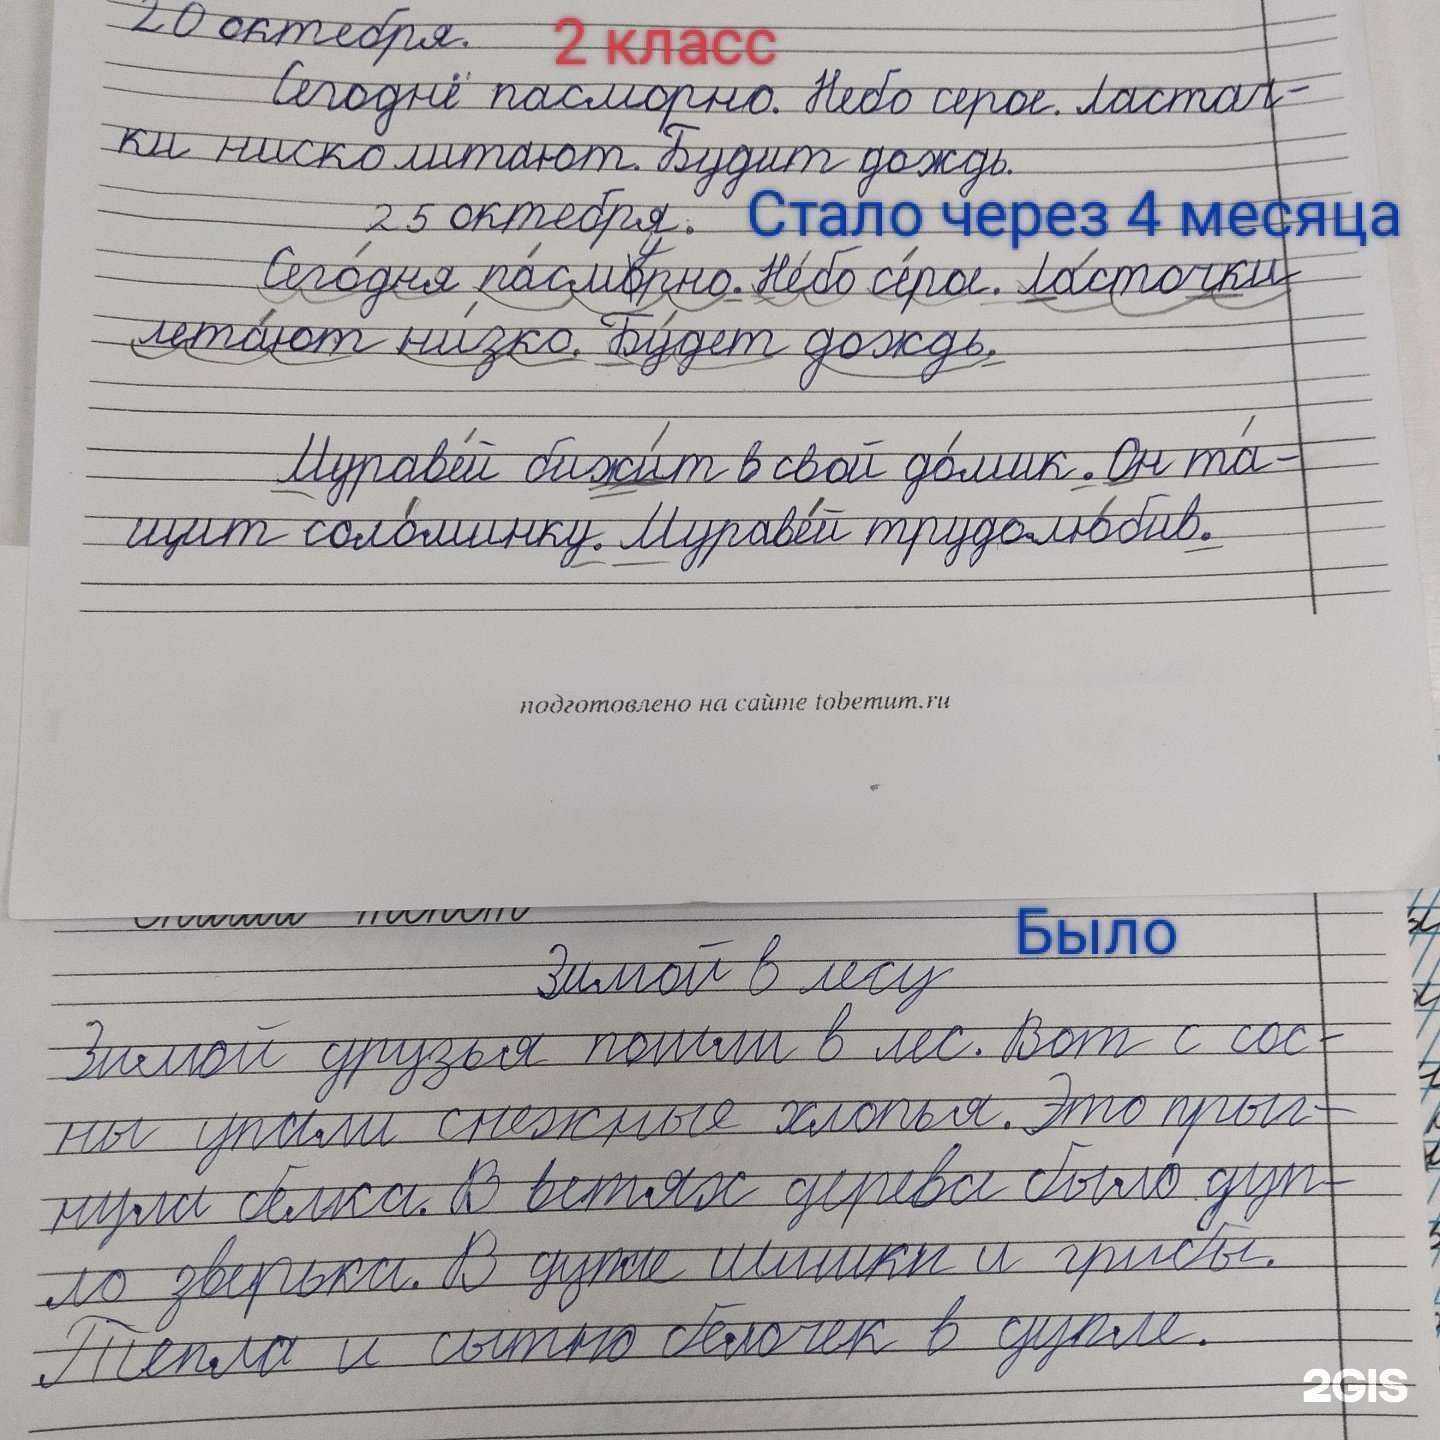 20 октебря. 2 класс
Сегоднё пасморно. Небо серое. Ластач-
ки ниско литают. Будит дождь.
25 октебря. Стало через 4 месяца
Сего́дня па́смурно. Не́бо се́рое. Ла́сточки
лета́ют ни́зко. Бу́дет дождь.
Мураве́й бижи́т в свой до́мик. Он та́-
щит соло́минку. Мураве́й трудолю́бив.
подготовлено на сайте tobemum.ru
Было
Зимой в лесу
Зимой друзья пошли в лес. Вот с сос-
ны упали снежные хлопья. Это прыг-
нула белка. В ветях дерева было дуп-
ло зверька. В дупле шишки и грибы.
Тепла и сытно белочек в дупле.
2GIS